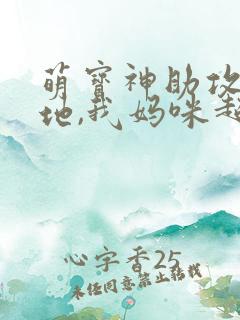 萌宝神助攻
地,我妈咪超
心字香25
未经同意禁止转载